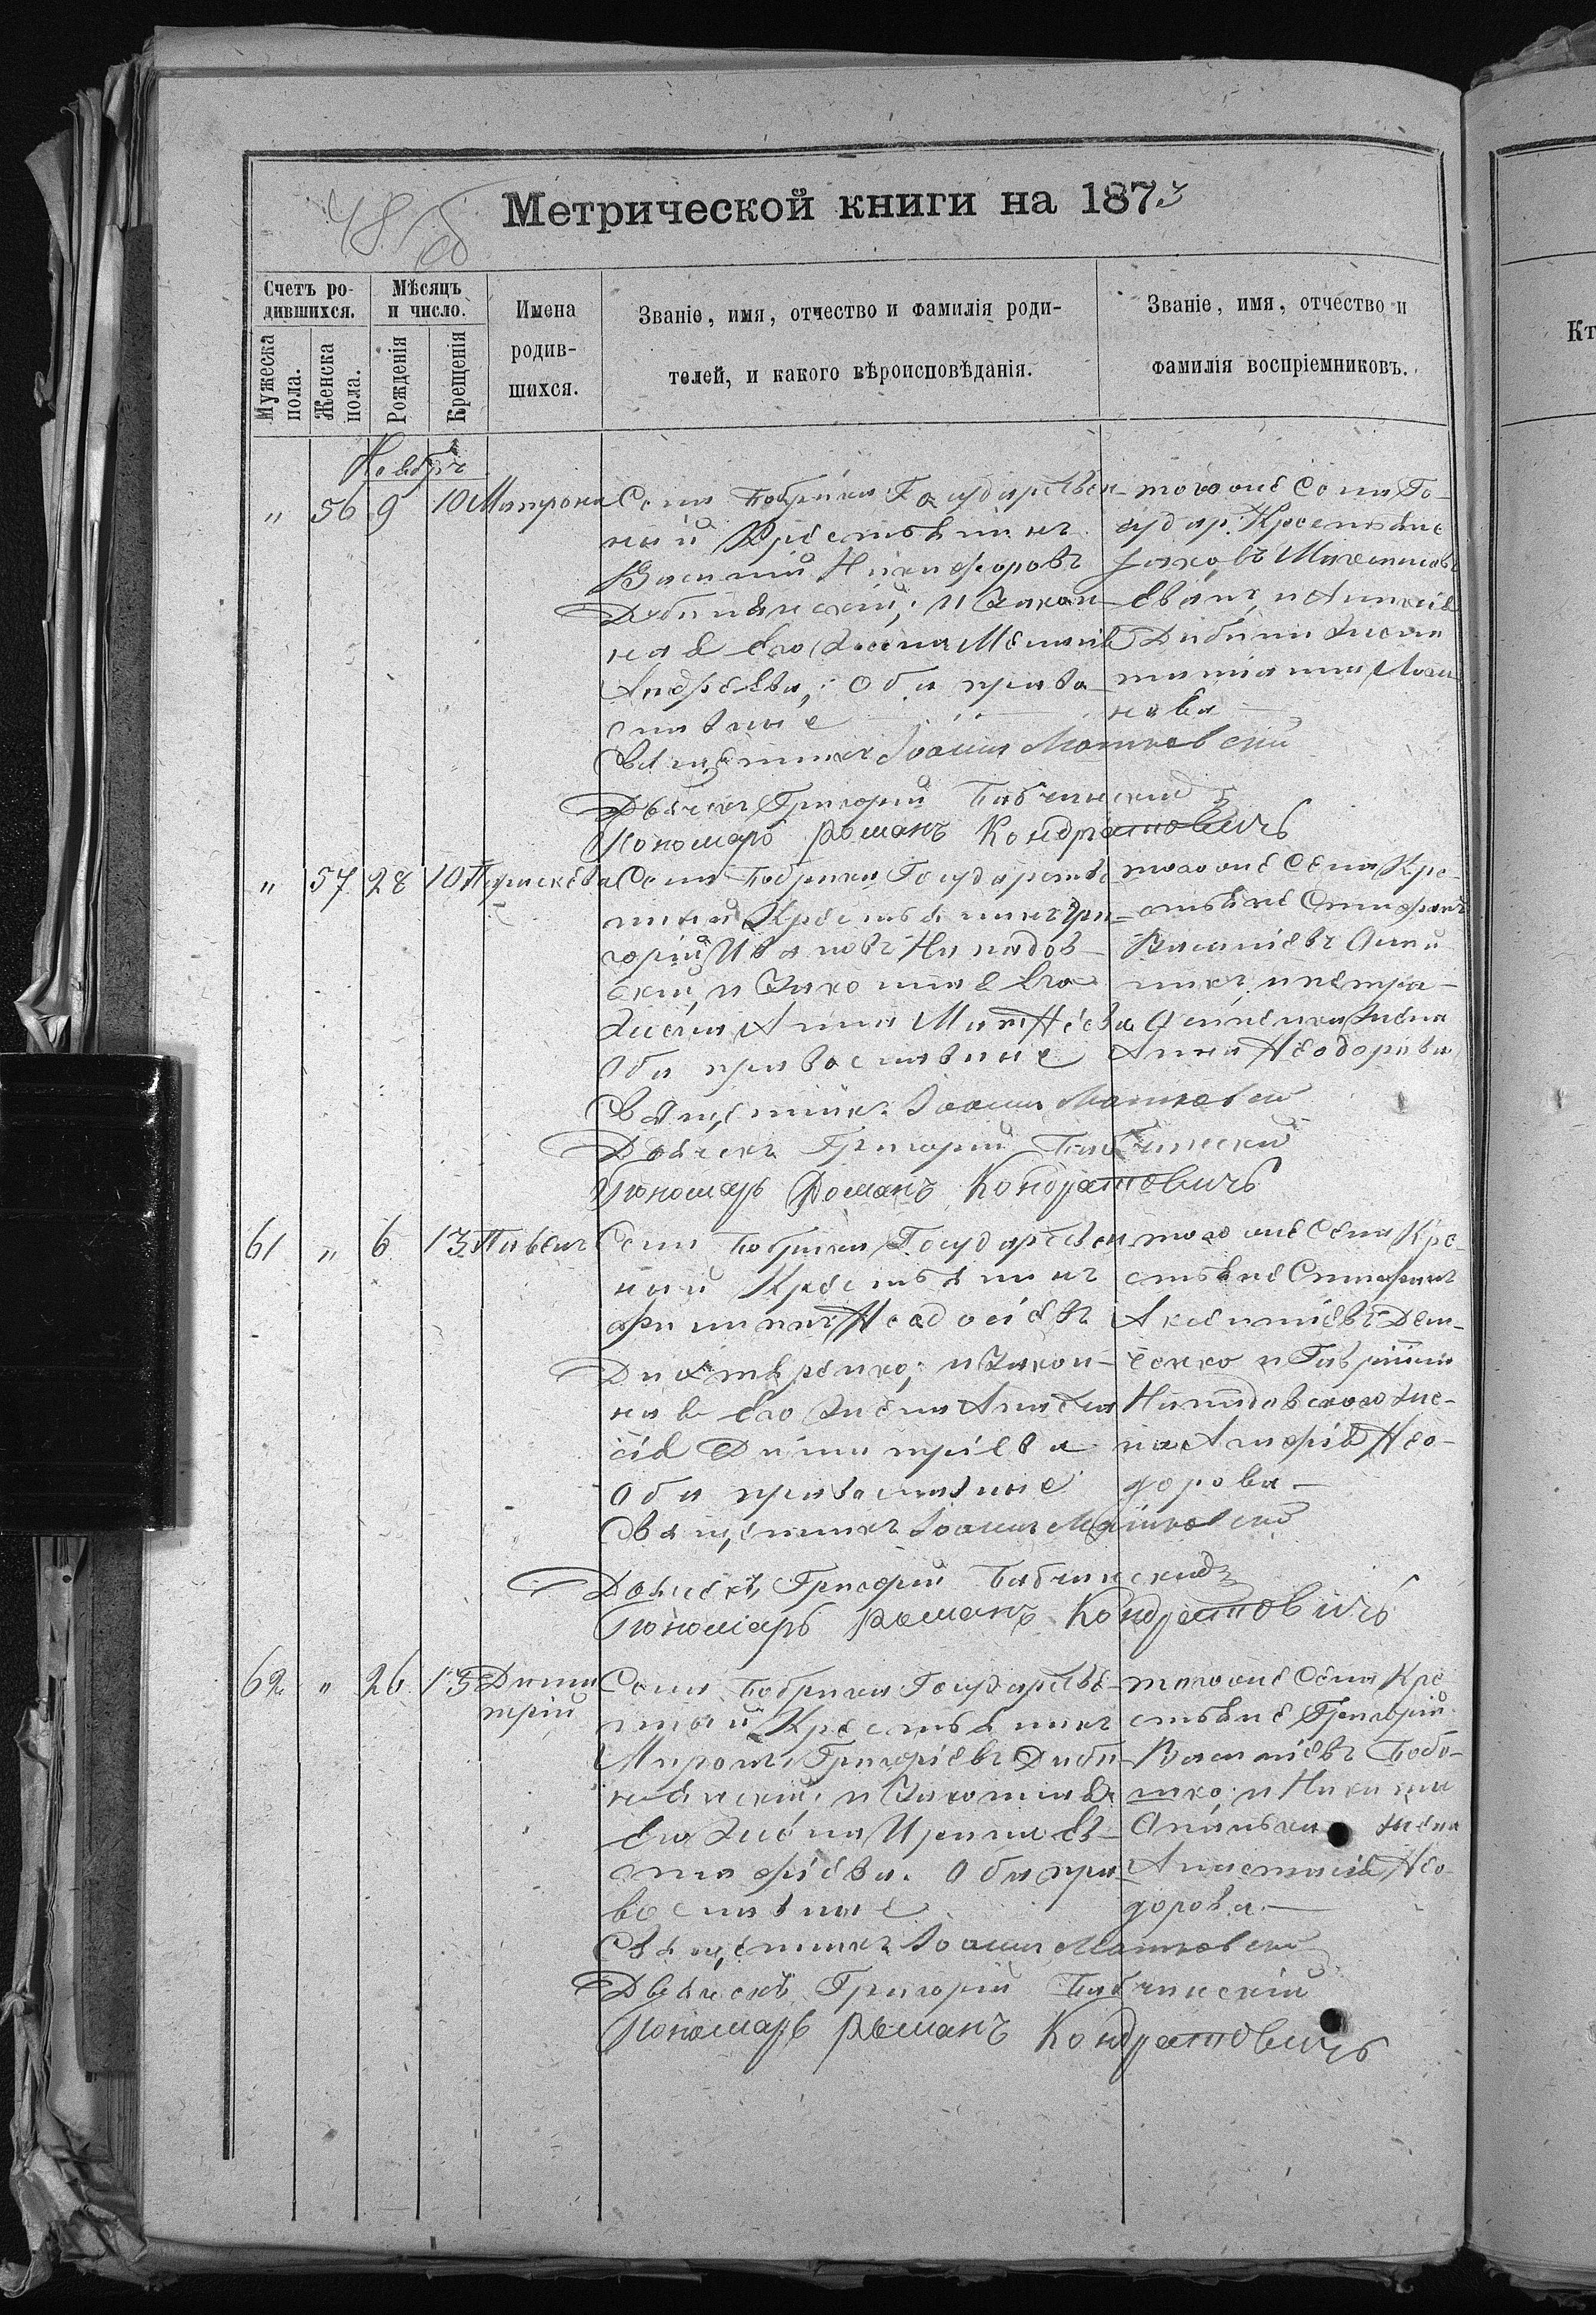 Метрической книги на 1873
Счетъ ро-
дившихся.
Мужеска пола.
Женска пола.
Мѣсяцъ
и число.
Рожденія
Крещенія
Имена
родив-
шихся.
Званіе, имя, отчество и фамилія роди-
телей, и какого вѣроисповѣданія.
Званіе, имя, отчество и
фамилія воспріемниковъ.
Ноябрь
" 56 9 10 Матрона
Села Бобрика Государствен-
ный Крестьянинъ
Василий Никифоровъ
и закон-
ная его жена
Андреева, Оба право-
славные
того же Села Го-
судар. Крестьяне
Яковъ
жена
нова
Священникъ Іоаннъ Матковский
Дьячекъ Григорий Бабчинский
Пономарь Романъ Кондратовичъ
" 57 28 10 Параскева
Села Бобрика Государстве-
нный Крестьянинъ Гри-
горій Ивановъ Нападов-
скій, и законная его
жена Анна Матѳѣева
Оба православные
того же Села Кре-
стьяне Стефанъ
Василіевъ
и Петра
жена
Анна Ѳеодорова
Священникъ Іоаннъ Матковский
Дьячекъ Григорий Бабчинский
Пономарь Романъ Кондратовичъ
61 " 6 13 Павелъ
Села Бобрика Государствен
ный Крестьянинъ
Филиппъ Ѳеодосіевъ
и закон-
ная его жена Анаста-
сія Димитріева
Оба православные
того же Села Кре-
стьяне Стефанъ
Нападовскаго же-
на Ѳео-
дорова
Священникъ Іоаннъ Матковский
Дьячекъ Григорий Бабчинский
Пономарь Романъ Кондратовичъ
62 " 26 13 Дими
трій
Села Бобрика Государстве-
нный Крестьянинъ
Миронъ Григоріевъ
и законная
его жена Ирина Ев-
стафіева. Оба пра-
вославные
того же Села Кре
стьяне Григорий
Василіевъ Бобо-
шко, и
жена
Анастасія Ѳео-
дорова
Священникъ Іоаннъ Матковский
Дьячекъ Григорий Бабчинскій
Пономарь Романъ Кондратовичъ
Кт